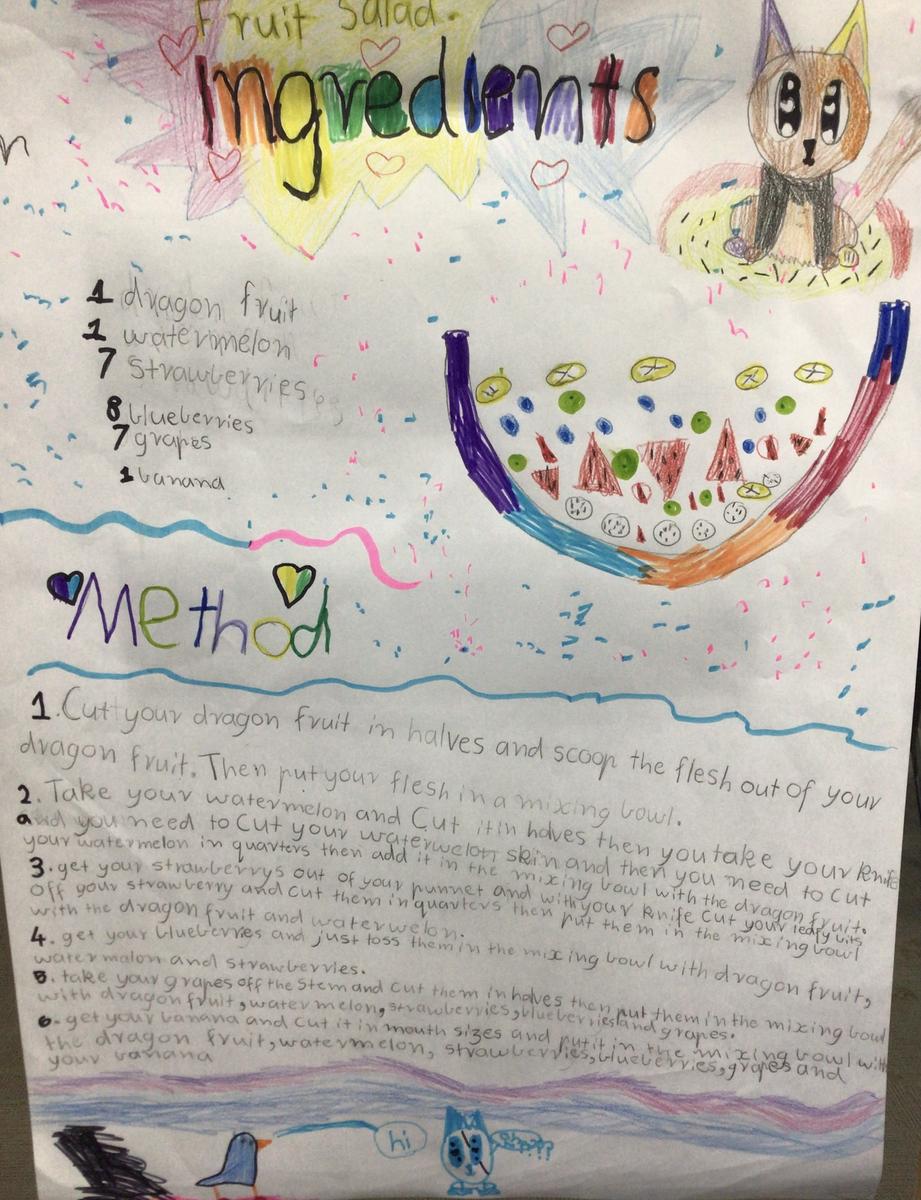 Fruit Salad.
Ingredients
n
1 dragon fruit
1 watermelon
7 Strawberries
8 blueberries
7 grapes
1 banana
Method
1. Cut your dragon fruit in halves and scoop the flesh out of your
dragon fruit. Then put your flesh in a mixing bowl.
2. Take your watermelon and Cut it in halves then you take your knife
and you need to Cut your waterwelon skin and then you need to cut
your watermelon in quarters then add it in the mixing bowl with the dragon fruit.
3. get your strawberrys out of your punnet and with your knife cut your leafy bits
off your strawberry and cut them in quarters then put them in the mixing bowl
with the dragon fruit and waterwelon.
4. get your blueberries and just toss them in the mixing bowl with dragon fruit,
watermalon and strawberries.
5. take your grapes off the stem and cut them in halves then put them in the mixing bowl
with dragon fruit, watermelon, strawberries, blueberries and grapes.
6. get your banana and cut it in mouth sizes and put it in the mixing bowl with
the dragon fruit, watermelon, strawberries, blueberries, grapes and
your banana
hi